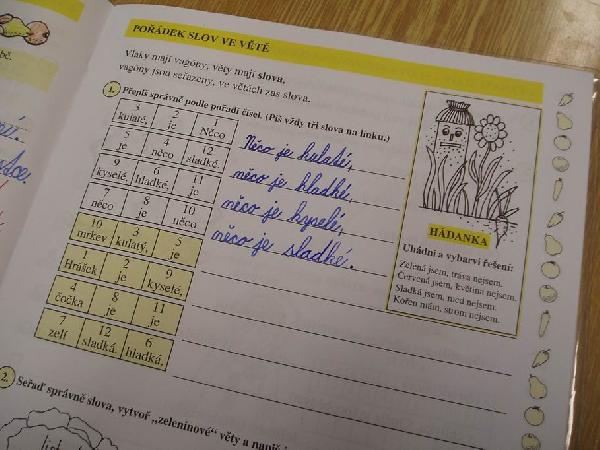 POŘÁDEK SLOV VE VĚTĚ
Vlaky mají vagóny, věty mají slova,
vagóny jsou seřazeny, ve větách zas slova.
1. Přepiš správně podle pořadí čísel. (Piš vždy tři slova na linku.)
3 2 1
kulaté, je Něco
5 4 12
je něco sladké.
9 6 11
kyselé, hladké, je
7 8 10
něco je něco
10 3 5
mrkev kulatý, je
1 2 9
Hrášek je kyselé,
4 8 11
čočka je je
7 12 6
zelí sladká. hladká.
Něco je kulaté,
něco je hladké,
něco je kyselé,
něco je sladké.
HÁDANKA
Uhádni a vybarvi řešení:
Zelená jsem, tráva nejsem.
Červená jsem, květina nejsem.
Sladká jsem, med nejsem.
Kořen mám, strom nejsem.
2. Seřaď správně slova, vytvoř „zeleninové" věty a napiš